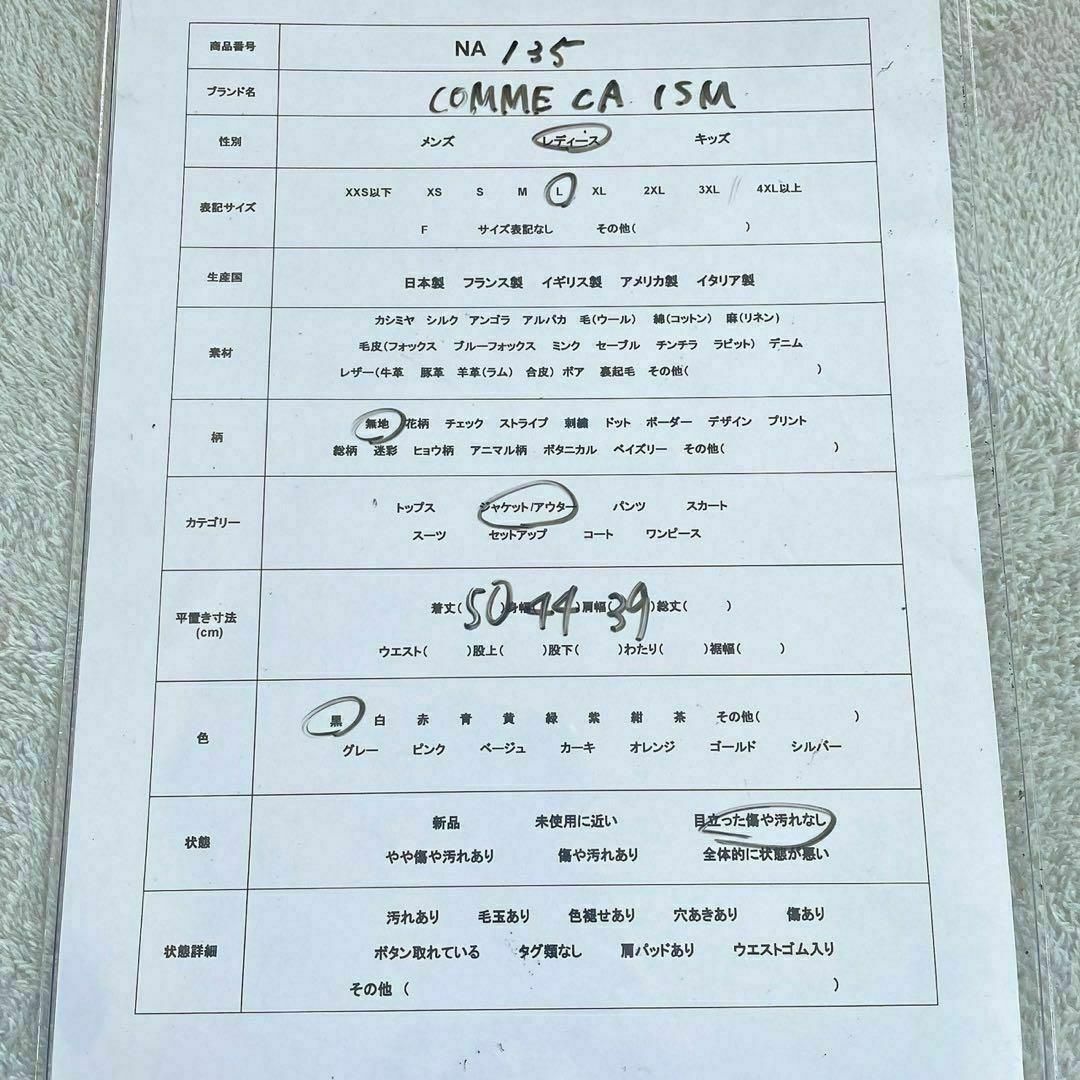 商品番号 NA 135
ブランド名 COMME CA ISM
性別 メンズ レディース キッズ
表記サイズ
XXS以下 XS S M L XL 2XL 3XL 4XL以上
F サイズ表記なし その他( )
生産国 日本製 フランス製 イギリス製 アメリカ製 イタリア製
素材
カシミヤ シルク アンゴラ アルパカ 毛(ウール) 綿(コットン) 麻(リネン)
毛皮(フォックス ブルーフォックス ミンク セーブル チンチラ ラビット) デニム
レザー(牛革 豚革 羊革(ラム) 合皮) ボア 裏起毛 その他( )
柄
無地 花柄 チェック ストライプ 刺繍 ドット ボーダー デザイン プリント
総柄 迷彩 ヒョウ柄 アニマル柄 ボタニカル ペイズリー その他( )
カテゴリー
トップス ジャケット/アウター パンツ スカート
スーツ セットアップ コート ワンピース
平置き寸法
(cm)
着丈( 50 )身幅( 44 )肩幅( 39 )総丈( )
ウエスト( )股上( )股下( )わたり( )裾幅( )
色
黒 白 赤 青 黄 緑 紫 紺 茶 その他( )
グレー ピンク ベージュ カーキ オレンジ ゴールド シルバー
状態
新品 未使用に近い 目立った傷や汚れなし
やや傷や汚れあり 傷や汚れあり 全体的に状態が悪い
状態詳細
汚れあり 毛玉あり 色褪せあり 穴あきあり 傷あり
ボタン取れている タグ類なし 肩パッドあり ウエストゴム入り
その他 ( )